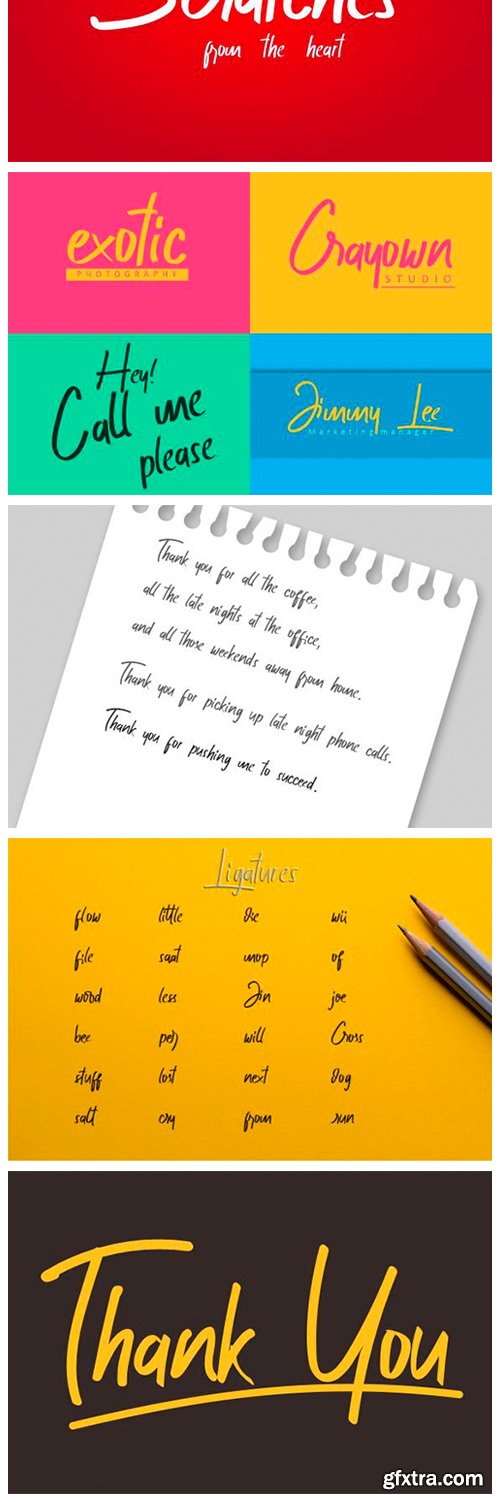 Scratches
from the heart
exotic
PHOTOGRAPHY
Crayown
STUDIO
Hey!
Call me
please
Jimmy Lee
Marketing manager
Thank you for all the coffee,
all the late nights at the office,
and all those weekends away from home.
Thank you for picking up late night phone calls.
Thank you for pushing me to succeed.
Ligatures
flow little wü
file saat mop of
wood less Jin joe
bee will Cross
stuff lost next
salt cry from run
Thank You
gfxtra.com